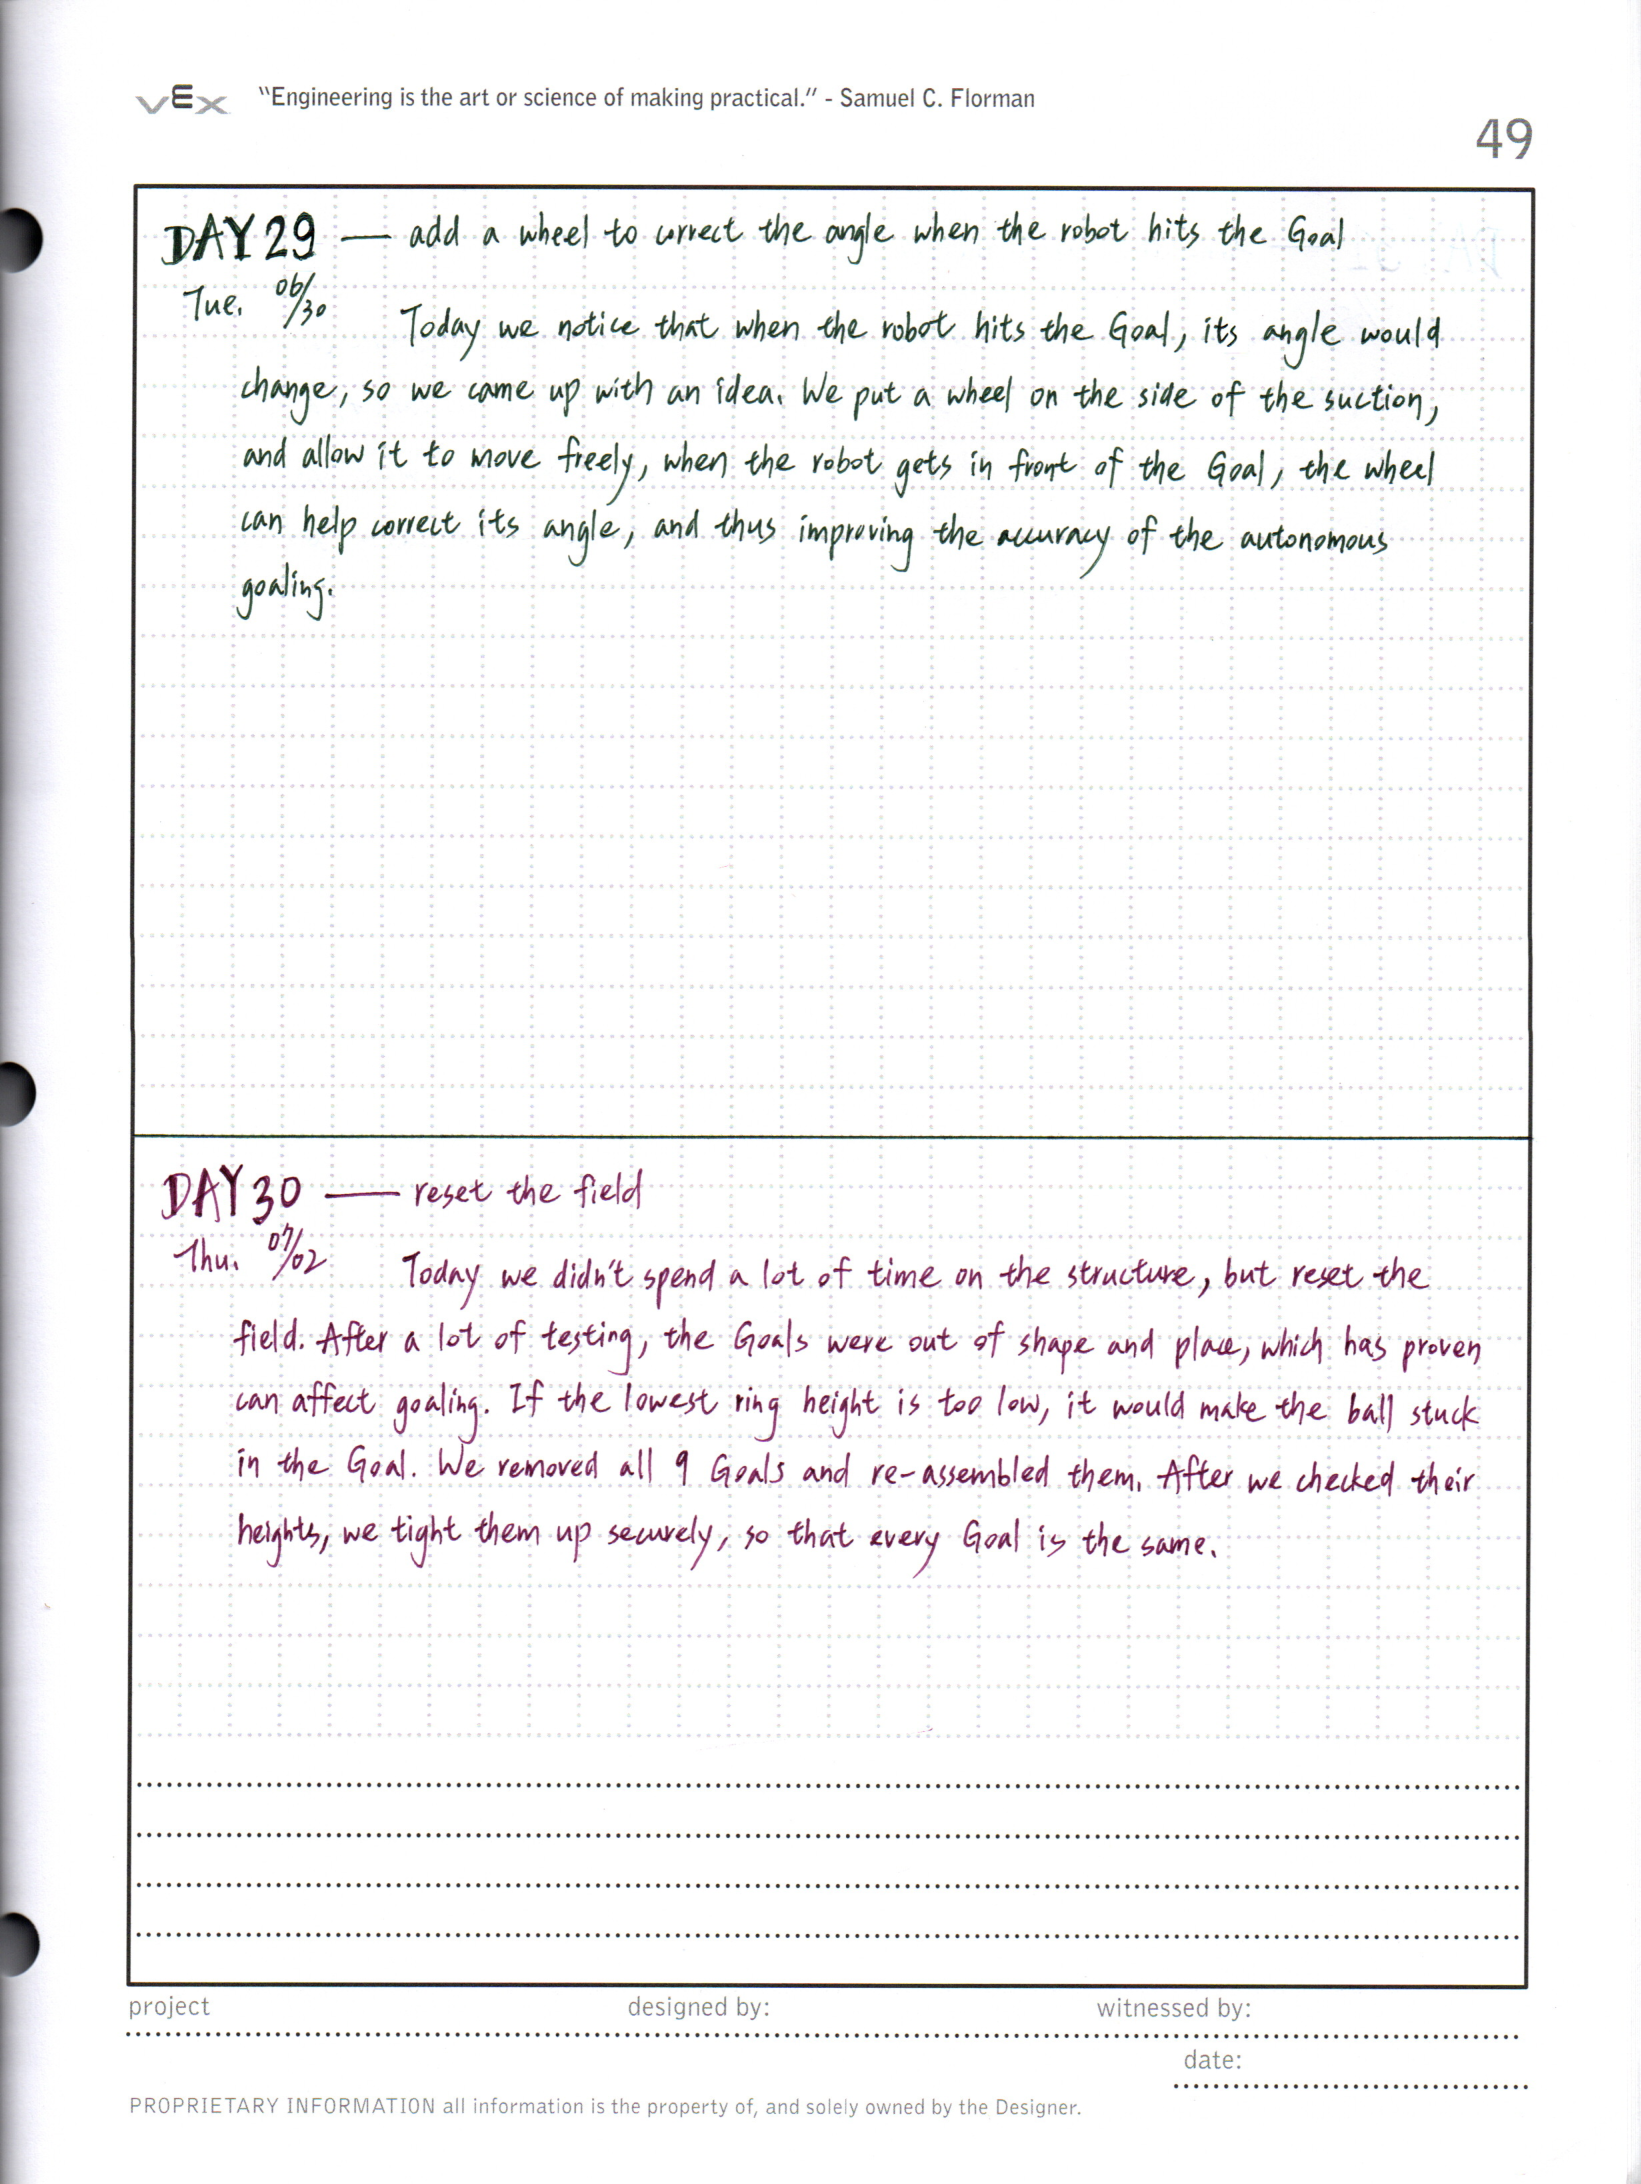 VEX "Engineering is the art or science of making practical." - Samuel C. Florman
49
DAY 29 — add a wheel to correct the angle when the robot hits the Goal
Tue. 06/30 Today we notice that when the robot hits the Goal, its angle would
change, so we came up with an idea. We put a wheel on the side of the suction,
and allow it to move freely, when the robot gets in front of the Goal, the wheel
can help correct its angle, and thus improving the accuracy of the autonomous
goaling.
DAY 30 — reset the field
Thu. 07/02 Today we didn't spend a lot of time on the structure, but reset the
field. After a lot of testing, the Goals were out of shape and place, which has proven
can affect goaling. If the lowest ring height is too low, it would make the ball stuck
in the Goal. We removed all 9 Goals and re-assembled them. After we checked their
heights, we tight them up securely, so that every Goal is the same.
project designed by: witnessed by:
date:
PROPRIETARY INFORMATION all information is the property of, and solely owned by the Designer.